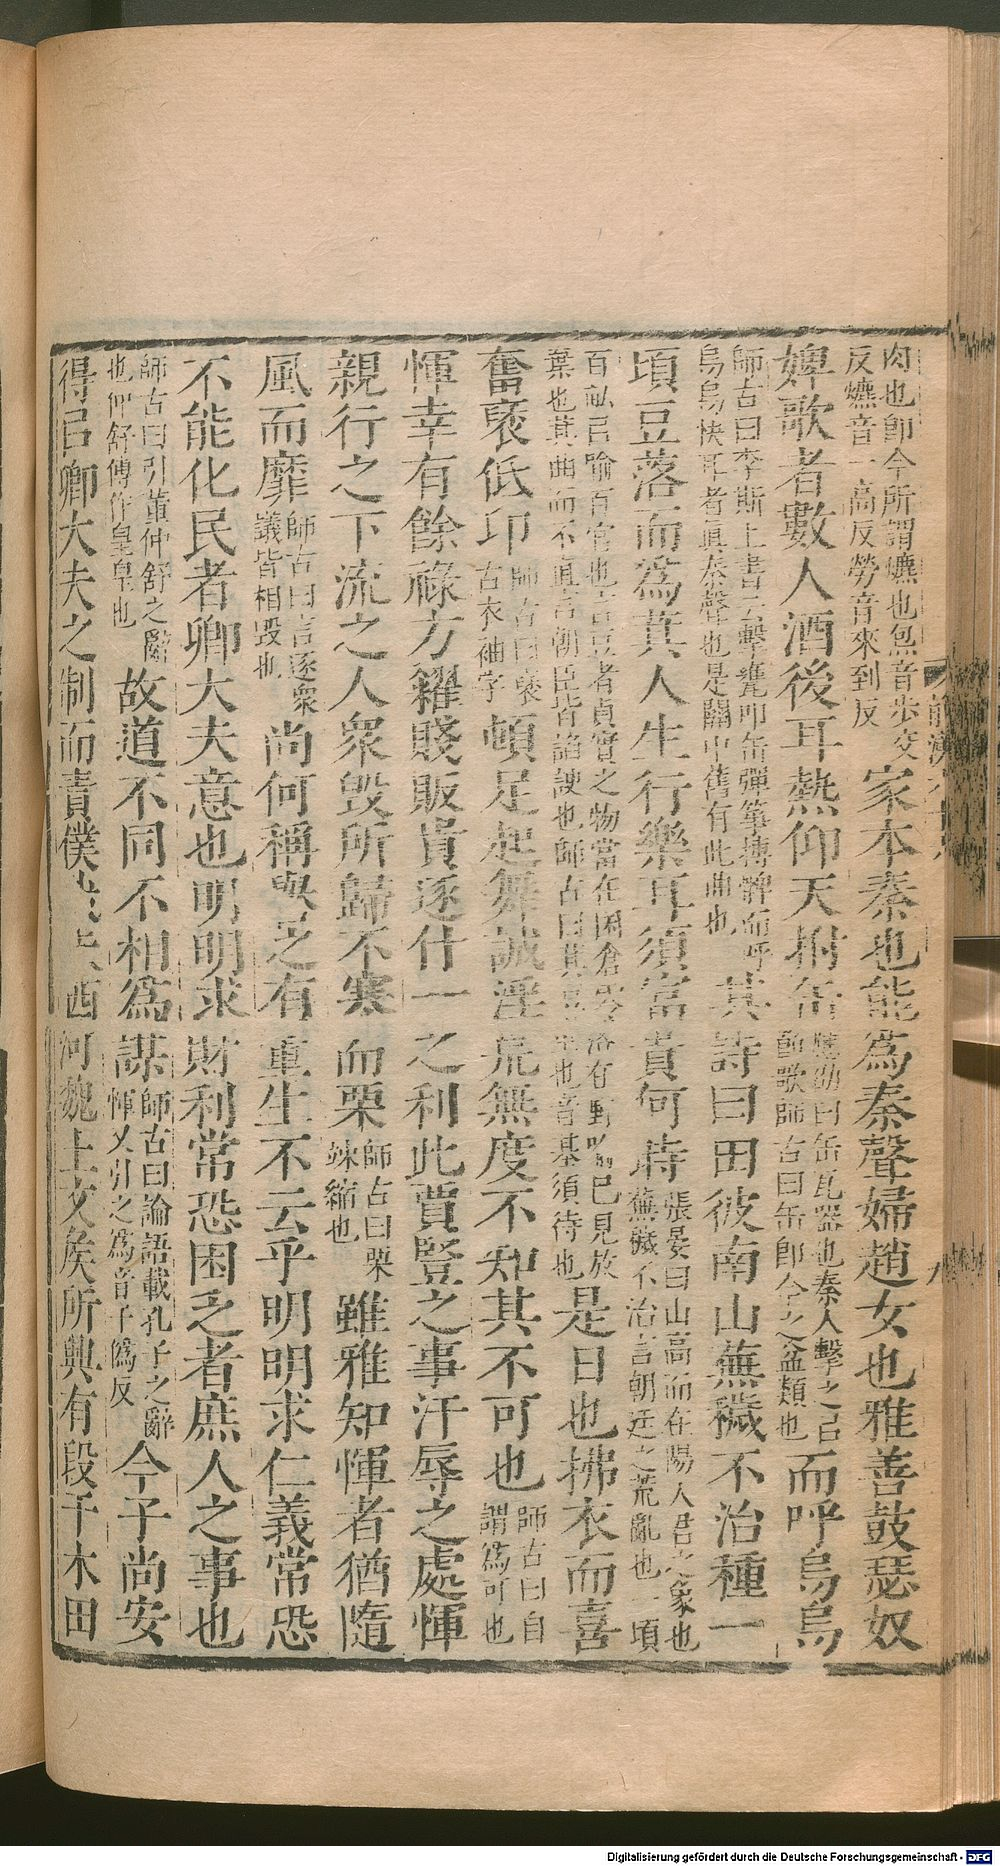 肉也即今所謂爊也炰音步交反爊音一高反勞音來到反家本秦也能為秦聲婦趙女也雅善鼓瑟奴
婢歌者數人酒後耳熱仰天拊缶應劭曰缶瓦器也秦人擊之㠯節歌師古曰缶即今之盆類也而呼烏烏
師古曰李斯上書云擊甕叩缶彈箏搏髀而呼烏烏快耳者眞秦聲也是關中舊有此曲也其詩曰田彼南山蕪穢不治種一
頃豆落而為萁人生行樂耳須富貴何時張晏曰山高而在陽人君之象也蕪穢不治言朝廷之荒亂也一頃
百畝㠯喻百官也言豆者貞實之物當在囷倉零落在野喻己見放棄也萁曲而不直言朝臣皆諂諛也師古曰萁豆莖也音基須待也是日也拂衣而喜
奮褎低卬師古曰褎古衣袖字頓足起舞誠淫荒無度不知其不可也師古曰自謂為可也
惲幸有餘祿方糴賤販貴逐什一之利此賈豎之事汙辱之處惲
親行之下流之人衆毀所歸不寒而栗師古曰栗竦縮也雖雅知惲者猶隨
風而靡師古曰言逐衆議皆相毀也尚何稱譽之有董生不云乎明明求仁義常恐
不能化民者卿大夫意也明明求財利常恐困乏者庶人之事也
師古曰引董仲舒之辭也仲舒傳作皇皇也故道不同不相為謀師古曰論語載孔子之辭惲又引之為音于僞反今子尚安
得㠯卿大夫之制而責僕哉夫西河魏土文矦所興有段干木田
前漢
Digitalisierung gefördert durch die Deutsche Forschungsgemeinschaft - DFG